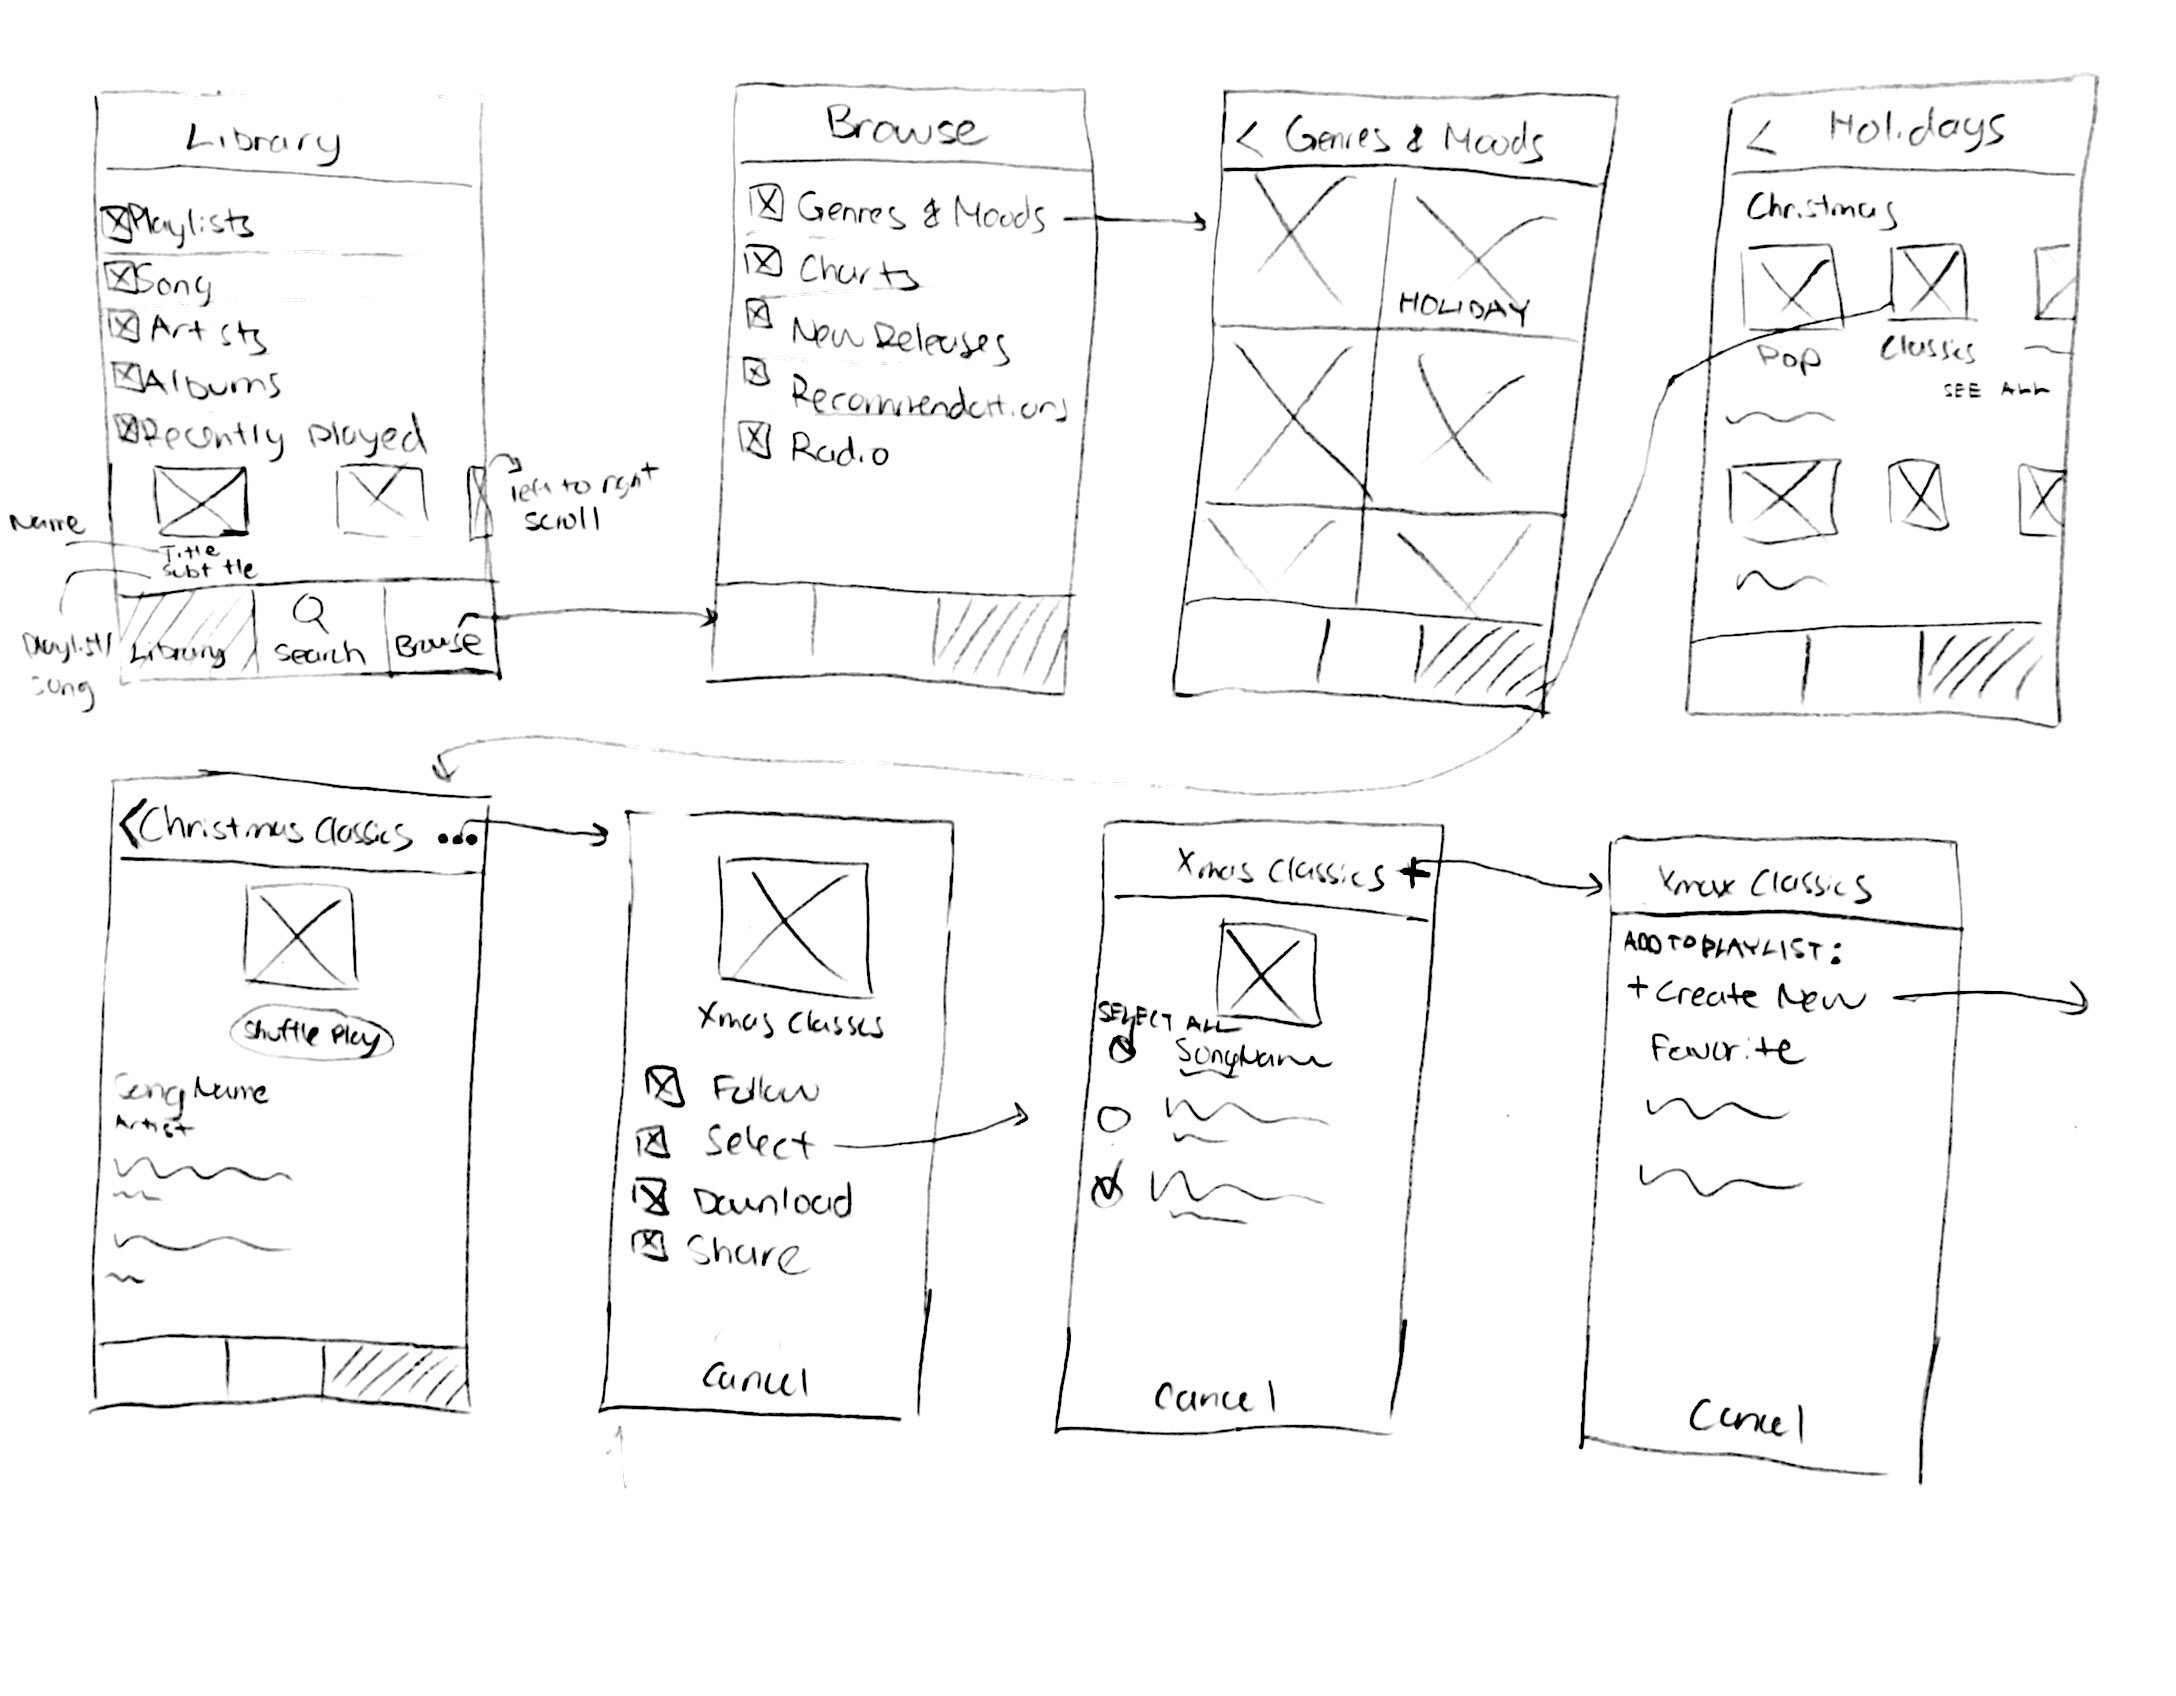 Library
Playlists
Song
Artists
Albums
Recently played
left to right
scroll
Name
Title
Subtitle
Playlist/
song
Library
Search
Browse
Browse
Genres & Moods
Charts
New Releases
Recommendations
Radio
< Genres & Moods
HOLIDAY
< Holidays
Christmas
Pop
Classics
SEE ALL
< Christmas Classics •••
Shuffle Play
Song Name
Artist
Xmas Classics
Follow
Select
Download
Share
Cancel
Xmas Classics +
SELECT ALL
Song Name
Cancel
Xmax Classics
ADD TO PLAYLIST:
+ Create New
Favorite
Cancel